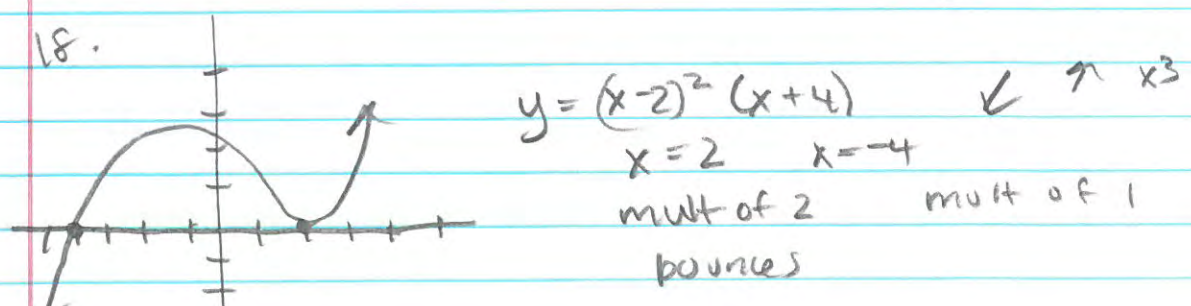 18.
y = (x-2)² (x+4) ↙ ↗ x3
x = 2 x = -4
mult of 2 mult of 1
bounces